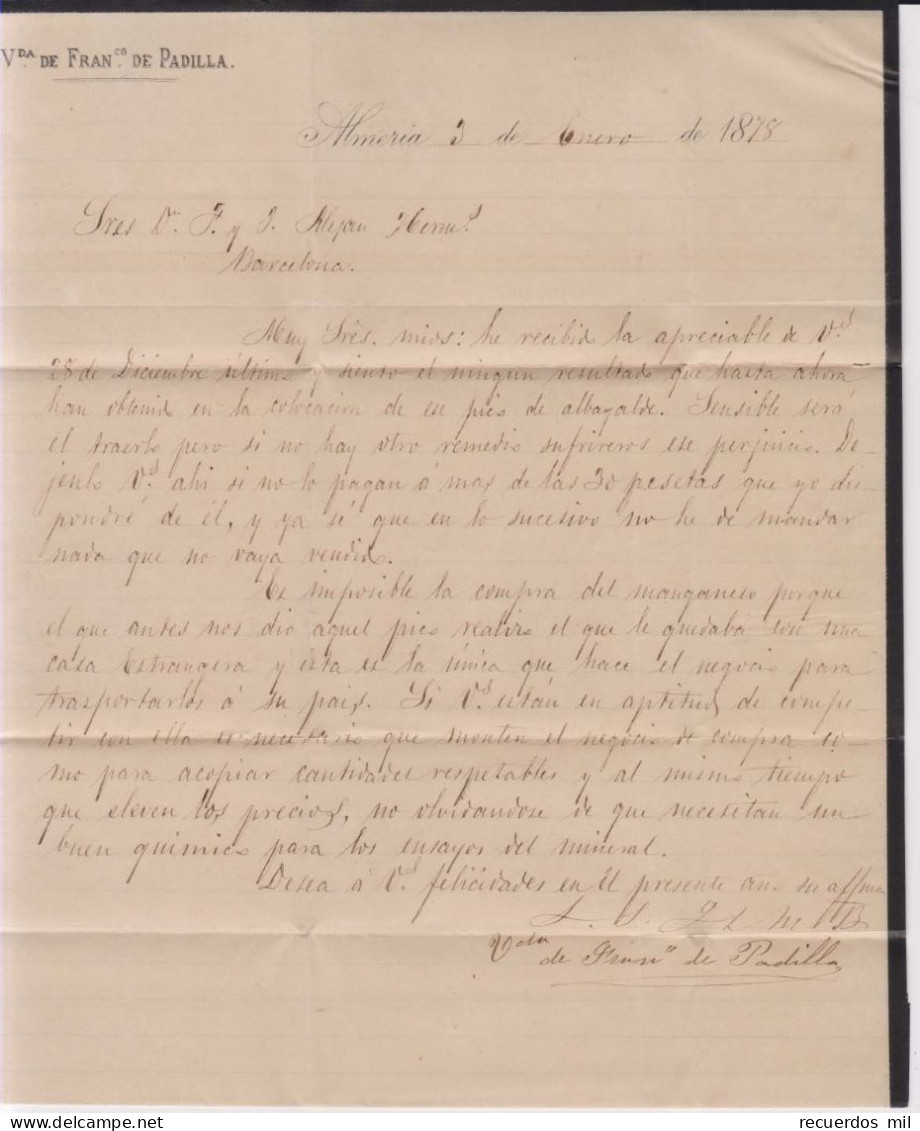 Vda. DE FRANco. DE PADILLA.
Almeria 3 de Enero de 1878
Sres Dn. F. y J. Alejan Herms.
Barcelona.
Muy Srês. mios: he recibido la apreciable de Vd.
28 de Diciembre último y siento el ningun resultado que hasta ahora
han obtenido en la colocacion de ese pico de albayalde. Sensible será
el traerlo pero si no hay otro remedio sufriremos ese perjuicio. De-
jenlo Vd. ahi si no lo pagan á mas de las 30 pesetas que yo dis-
pondré de él, y ya sé que en lo sucesivo no he de mandar
nada que no vaya vendido.
Es imposible la compra del manganeso porque
el que antes nos dio aquel pico realizo el que le quedaba con una
casa Estrangera y ésta es la única que hace el negocio para
trasportarlos á su pais. Si Vd. están en aptitud de compe-
tir con ella es necesario que monten el negocio de compra co-
mo para acopiar cantidades respetables y al mismo tiempo
que eleven los precios, no olvidandose de que necesitan un
buen químico para los ensayos del mineral.
Desea á Vd. felicidades en él presente año su affma
S. S. Q L M B
Vda de Franco de Padilla
recuerdos mil